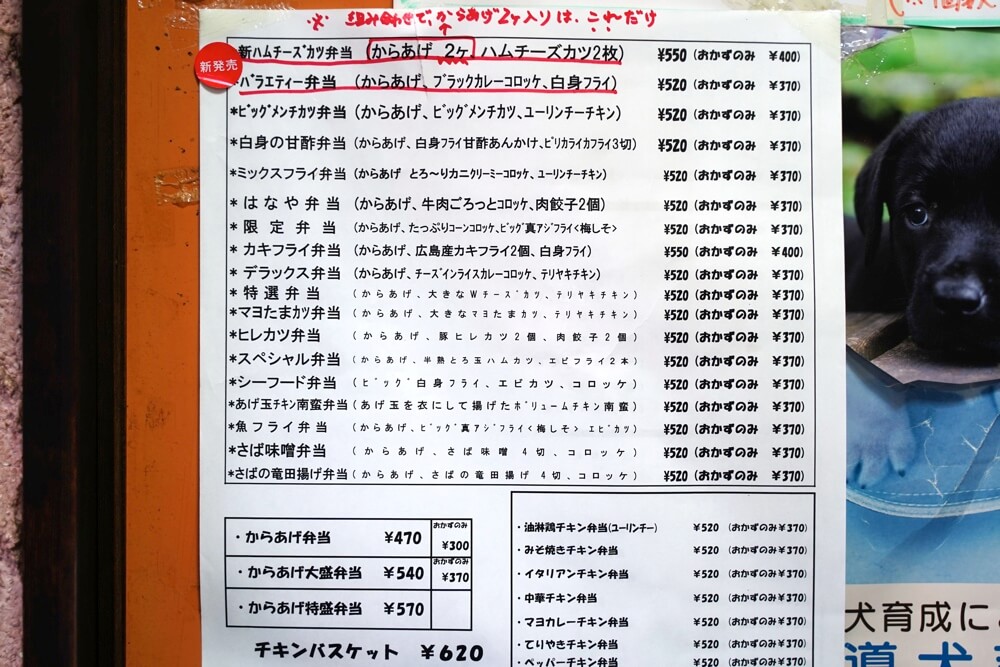 ※ 組み合わせで、からあげ2ヶ入りは、これだけ
新発売
新ハムチーズカツ弁当 (からあげ 2ヶ ハムチーズカツ2枚) ¥550 (おかずのみ ¥400)
*バラエティー弁当 (からあげ、ブラックカレーコロッケ、白身フライ) ¥520 (おかずのみ ¥370)
*ビッグメンチカツ弁当 (からあげ、ビッグメンチカツ、ユーリンチーチキン) ¥520 (おかずのみ ¥370)
*白身の甘酢弁当 (からあげ、白身フライ甘酢あんかけ、ピリカライカフライ3切) ¥520 (おかずのみ ¥370)
*ミックスフライ弁当 (からあげ とろ〜りカニクリーミーコロッケ、ユーリンチーチキン) ¥520 (おかずのみ ¥370)
*はなや弁当 (からあげ、牛肉ごろっとコロッケ、肉餃子2個) ¥520 (おかずのみ ¥370)
*限定弁当 (からあげ、たっぷりコーンコロッケ、ビッグ真アジフライ<梅しそ> ¥520 (おかずのみ ¥370)
*カキフライ弁当 (からあげ、広島産カキフライ2個、白身フライ) ¥550 (おかずのみ ¥400)
*デラックス弁当 (からあげ、チーズインライスカレーコロッケ、テリヤキチキン) ¥520 (おかずのみ ¥370)
*特選弁当 (からあげ、大きなWチーズカツ、テリヤキチキン) ¥520 (おかずのみ ¥370)
*マヨたまカツ弁当 (からあげ、大きなマヨたまカツ、テリヤキチキン) ¥520 (おかずのみ ¥370)
*ヒレカツ弁当 (からあげ、豚ヒレカツ2個、肉餃子2個) ¥520 (おかずのみ ¥370)
*スペシャル弁当 (からあげ、半熟とろ玉ハムカツ、エビフライ2本) ¥520 (おかずのみ ¥370)
*シーフード弁当 (ビッグ白身フライ、エビカツ、コロッケ) ¥520 (おかずのみ ¥370)
*あげ玉チキン南蛮弁当 (あげ玉を衣にして揚げたボリュームチキン南蛮) ¥520 (おかずのみ ¥370)
*魚フライ弁当 (からあげ、ビッグ真アジフライ<梅しそ> エビカツ) ¥520 (おかずのみ ¥370)
*さば味噌弁当 (からあげ、さば味噌 4切、コロッケ) ¥520 (おかずのみ ¥370)
*さばの竜田揚げ弁当 (からあげ、さばの竜田揚げ 4切、コロッケ) ¥520 (おかずのみ ¥370)
・からあげ弁当 ¥470 おかずのみ ¥300
・からあげ大盛弁当 ¥540 おかずのみ ¥370
・からあげ特盛弁当 ¥570
チキンバスケット ¥620
・油淋鶏チキン弁当(ユーリンチー) ¥520 (おかずのみ¥370)
・みそ焼きチキン弁当 ¥520 (おかずのみ¥370)
・イタリアンチキン弁当 ¥520 (おかずのみ¥370)
・中華チキン弁当 ¥520 (おかずのみ¥370)
・マヨカレーチキン弁当 ¥520 (おかずのみ¥370)
・てりやきチキン弁当 ¥520 (おかずのみ¥370)
・ペッパーチキン弁当 ¥520 (おかずのみ¥370)
犬育成に
導犬